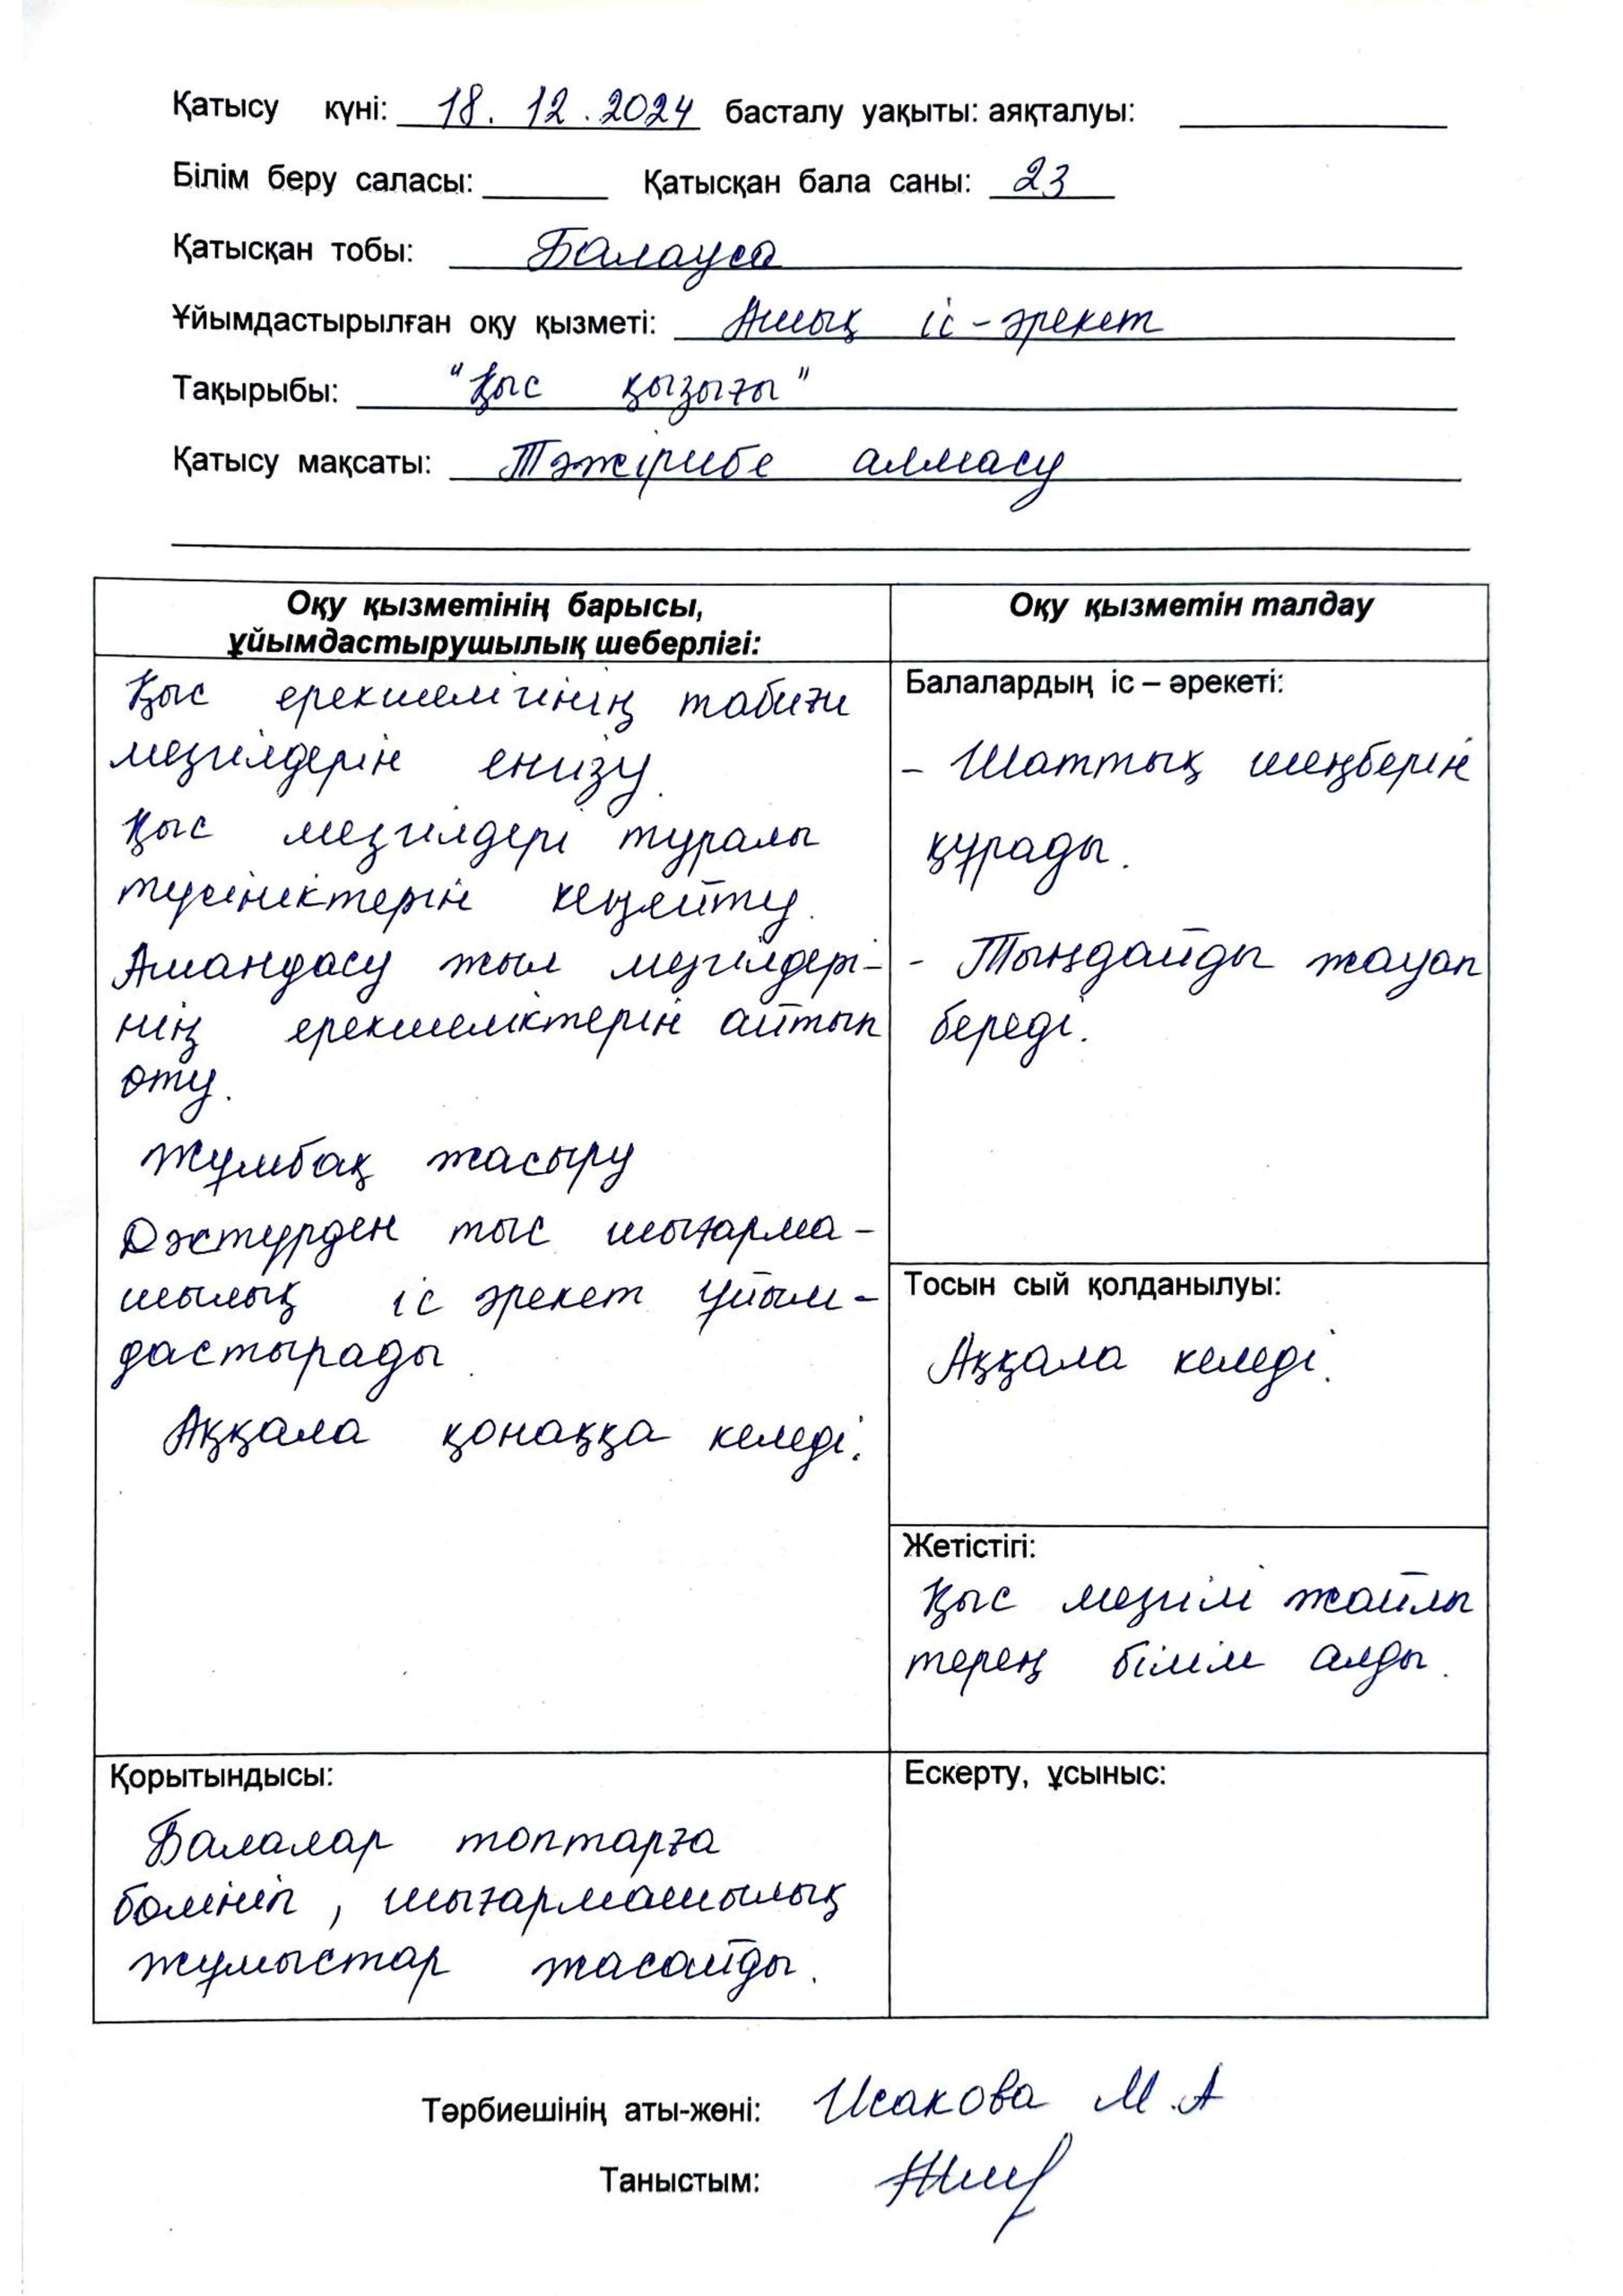 Қатысу күні: 18. 12. 2024 басталу уақыты: аяқталуы:
Білім беру саласы: Қатысқан бала саны: 23
Қатысқан тобы: Балауса
Ұйымдастырылған оқу қызметі: Ашық іс-әрекет
Тақырыбы: "Қыс қызығы"
Қатысу мақсаты: Тәжірибе алмасу
Оқу қызметінің барысы,
ұйымдастырушылық шеберлігі:
Қыс ерекшелігінің табиғи
мезгілдерін енгізу.
Қыс мезгілдері туралы
түсініктерін кеңейту.
Амандасу жыл мезгілдері-
нің ерекшеліктерін айтып
өту.
Жұмбақ жасыру
Дәстүрден тыс шығарма-
шылық іс әрекет ұйым-
дастырады.
Аққала қонаққа келеді.
Оқу қызметін талдау
Балалардың іс – әрекеті:
- Шаттық шеңберін
құрады.
- Тыңдайды жауап
береді.
Тосын сый қолданылуы:
Аққала келеді.
Жетістігі:
Қыс мезгілі жайлы
терең білім алды.
Қорытындысы:
Балалар топтарға
бөлініп, шығармашылық
жұмыстар жасайды.
Ескерту, ұсыныс:
Тәрбиешінің аты-жөні: Исакова М.А
Таныстым: